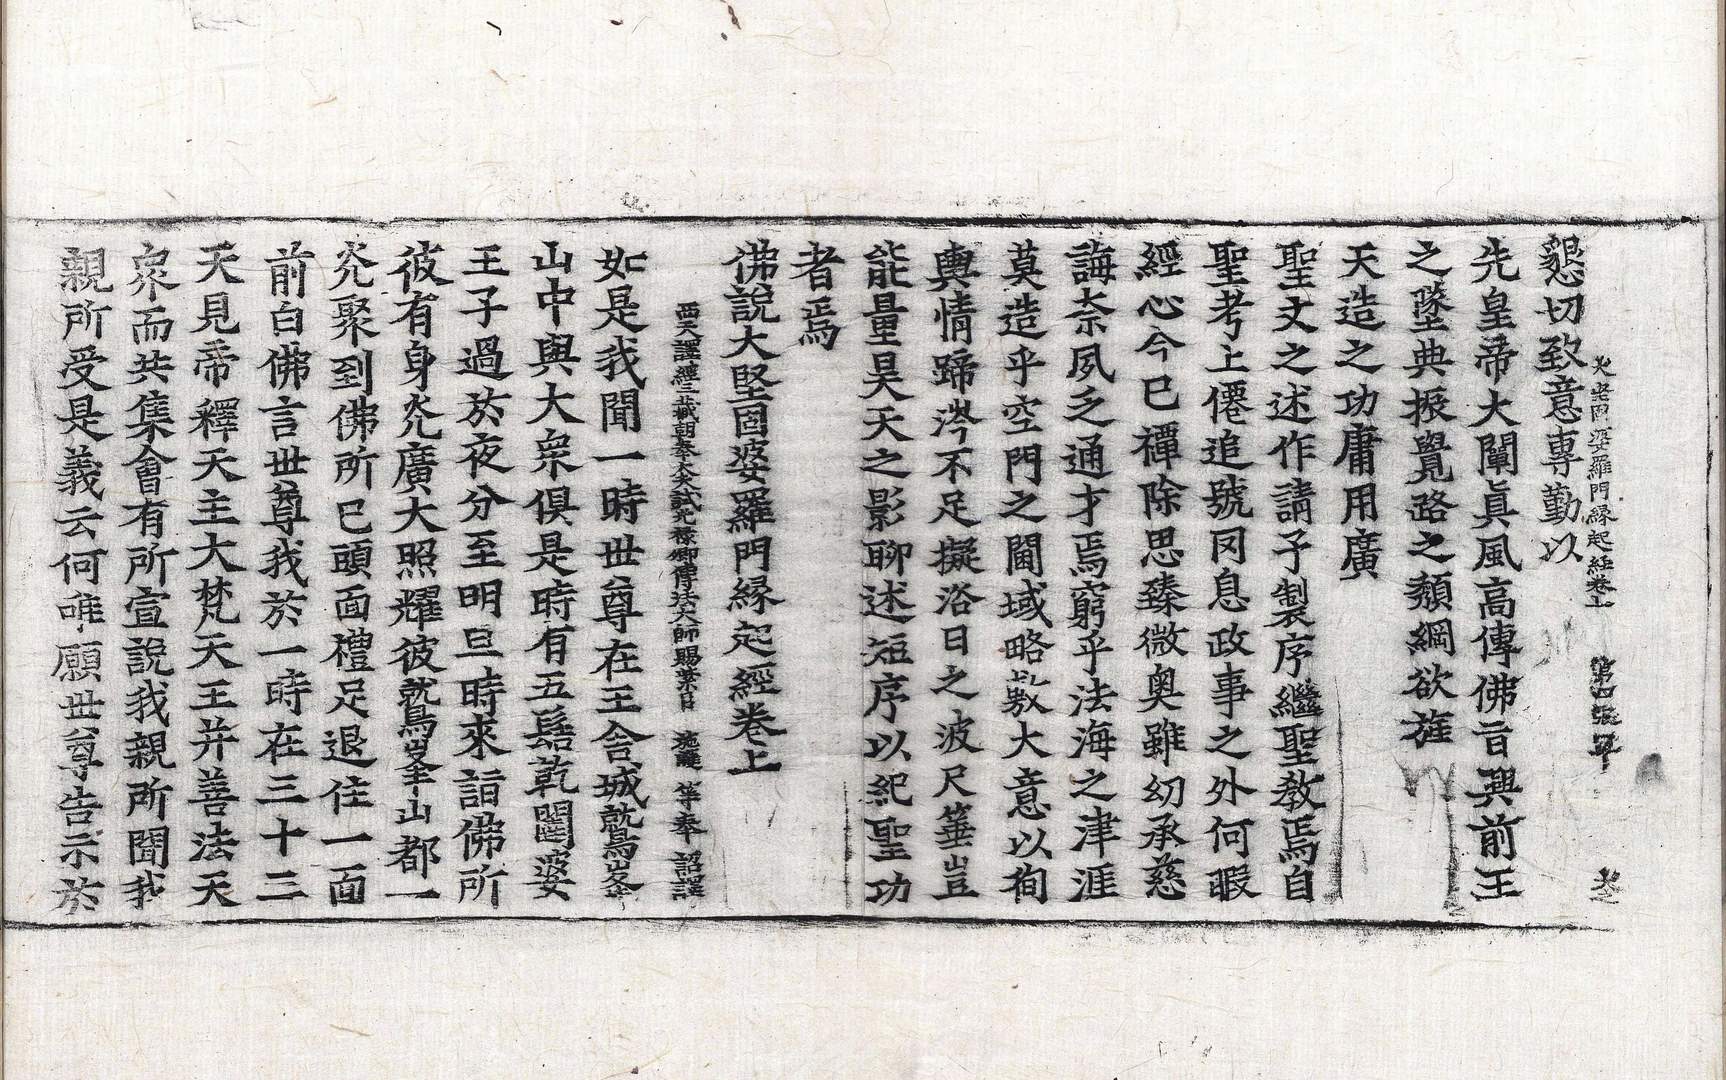 大堅固婆羅門緣起經卷上 第四張
懇切致意專勤以
先皇帝大闡眞風高傳佛旨興前王
之墜典振覺路之頹綱欲旌
天造之功庸用廣
聖文之述作請予製序繼聖教焉自
聖考上僊追號罔息政事之外何暇
經心今已禫除思臻微奧雖幼承慈
誨柰夙乏通才焉窮乎法海之津涯
莫造乎空門之閫域略敷大意以徇
輿情蹄涔不足擬浴日之波尺箠豈
能量昊天之影聊述短序以紀聖功
者焉
佛說大堅固婆羅門緣起經卷上
西天譯經三藏朝奉大夫試光祿卿傳法大師賜紫臣 施護 等奉 詔譯
如是我聞一時世尊在王舍城鷲峯
山中與大衆俱是時有五髻乾闥婆
王子過於夜分至明旦時來詣佛所
彼有身光廣大照耀彼鷲峯山都一
光聚到佛所已頭面禮足退住一面
前白佛言世尊我於一時在三十三
天見帝釋天主大梵天王并善法天
衆而共集會有所宣說我親所聞我
親所受是義云何唯願世尊告示於